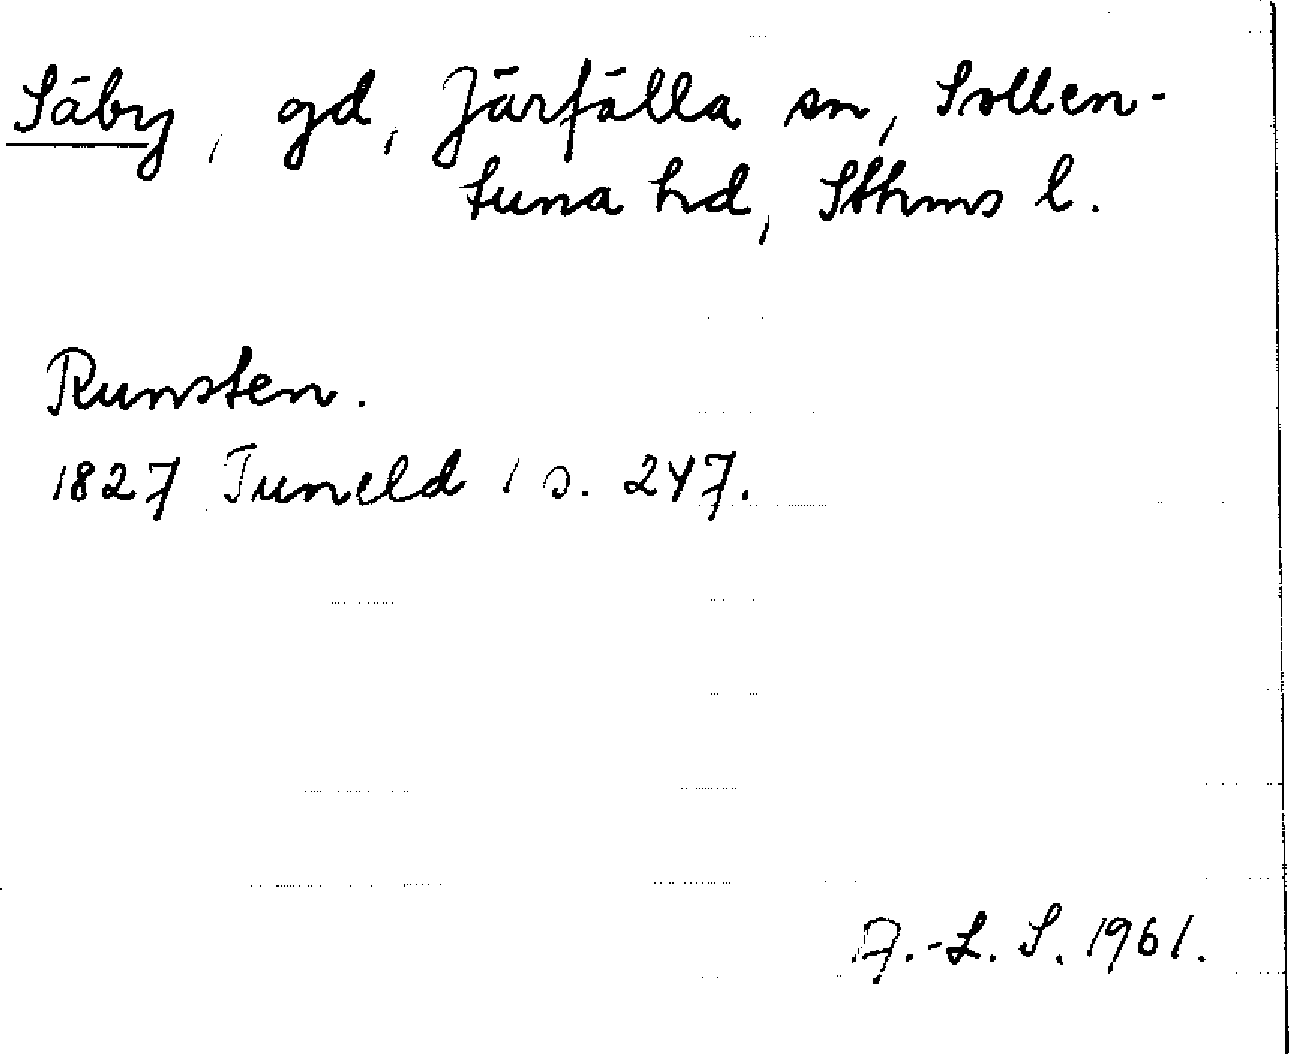 Säby, gd, Järfälla sn, Sollen-
tuna hd, Sthms l.
Runsten.
1827 Tuneld 1 s. 247.
A.-L. S. 1961.